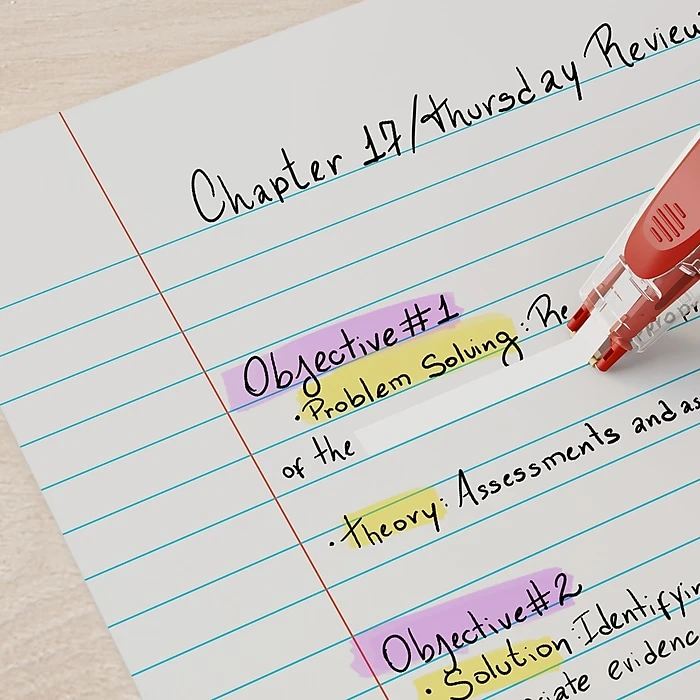 Chapter 17/thursday Review
Objective #1
· Problem Solving: Re
of the
· theory: Assessments and as
Objective #2
· Solution: Identifyin
ciate evidenc